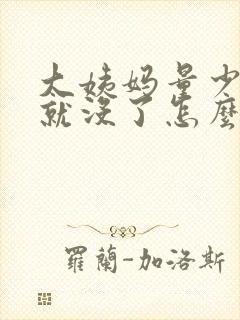 大姨妈量少
就没了怎麼
羅蘭-加洛斯